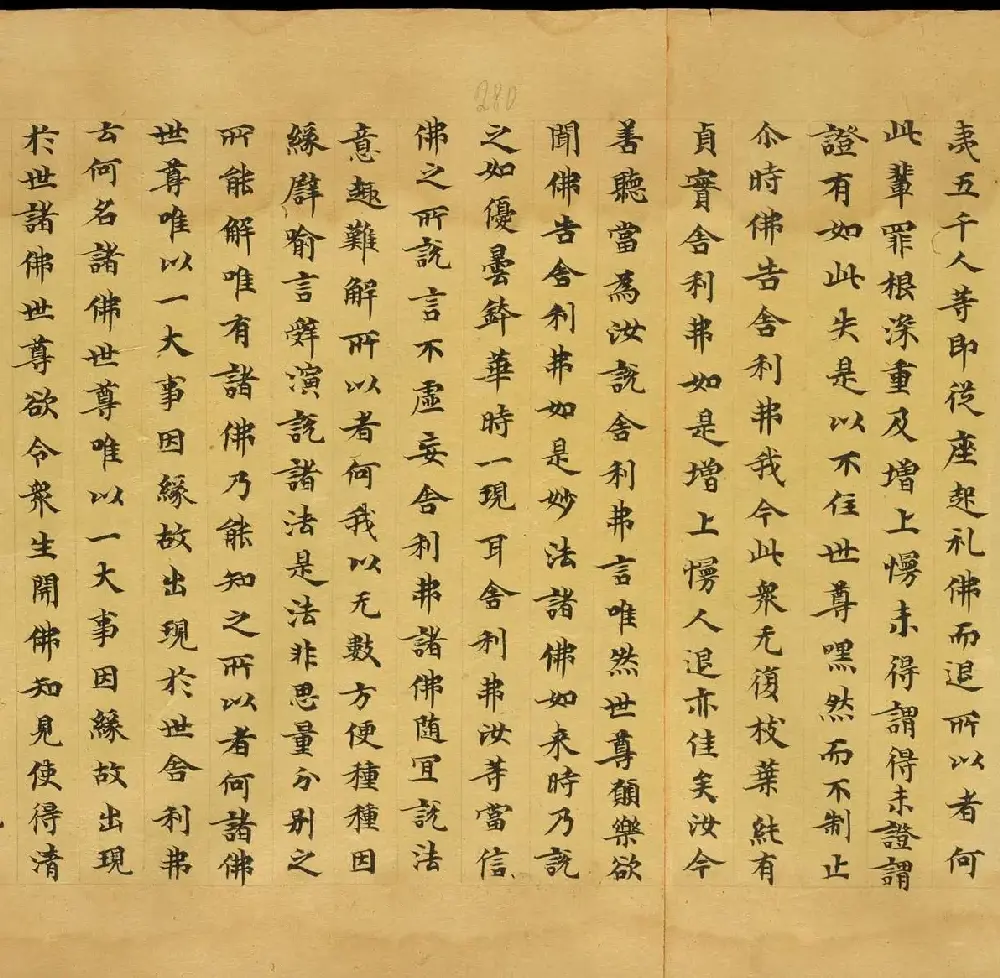 夷五千人等即從座起礼佛而退所以者何
此輩罪根深重及增上慢未得謂得未證謂
證有如此失是以不住世尊嘿然而不制止
尒時佛告舍利弗我今此衆无復枝葉純有
貞實舍利弗如是增上慢人退亦佳矣汝今
善聽當為汝說舍利弗言唯然世尊願樂欲
聞佛告舍利弗如是妙法諸佛如来時乃說
之如優曇鉢華時一現耳舍利弗汝等當信
佛之所說言不虛妄舍利弗諸佛随冝說法
意趣難解所以者何我以无數方便種種因
緣譬喻言辤演說諸法是法非思量分別之
所能解唯有諸佛乃能知之所以者何諸佛
世尊唯以一大事因緣故出現於世舍利弗
云何名諸佛世尊唯以一大事因緣故出現
於世諸佛世尊欲令衆生開佛知見使得清
280